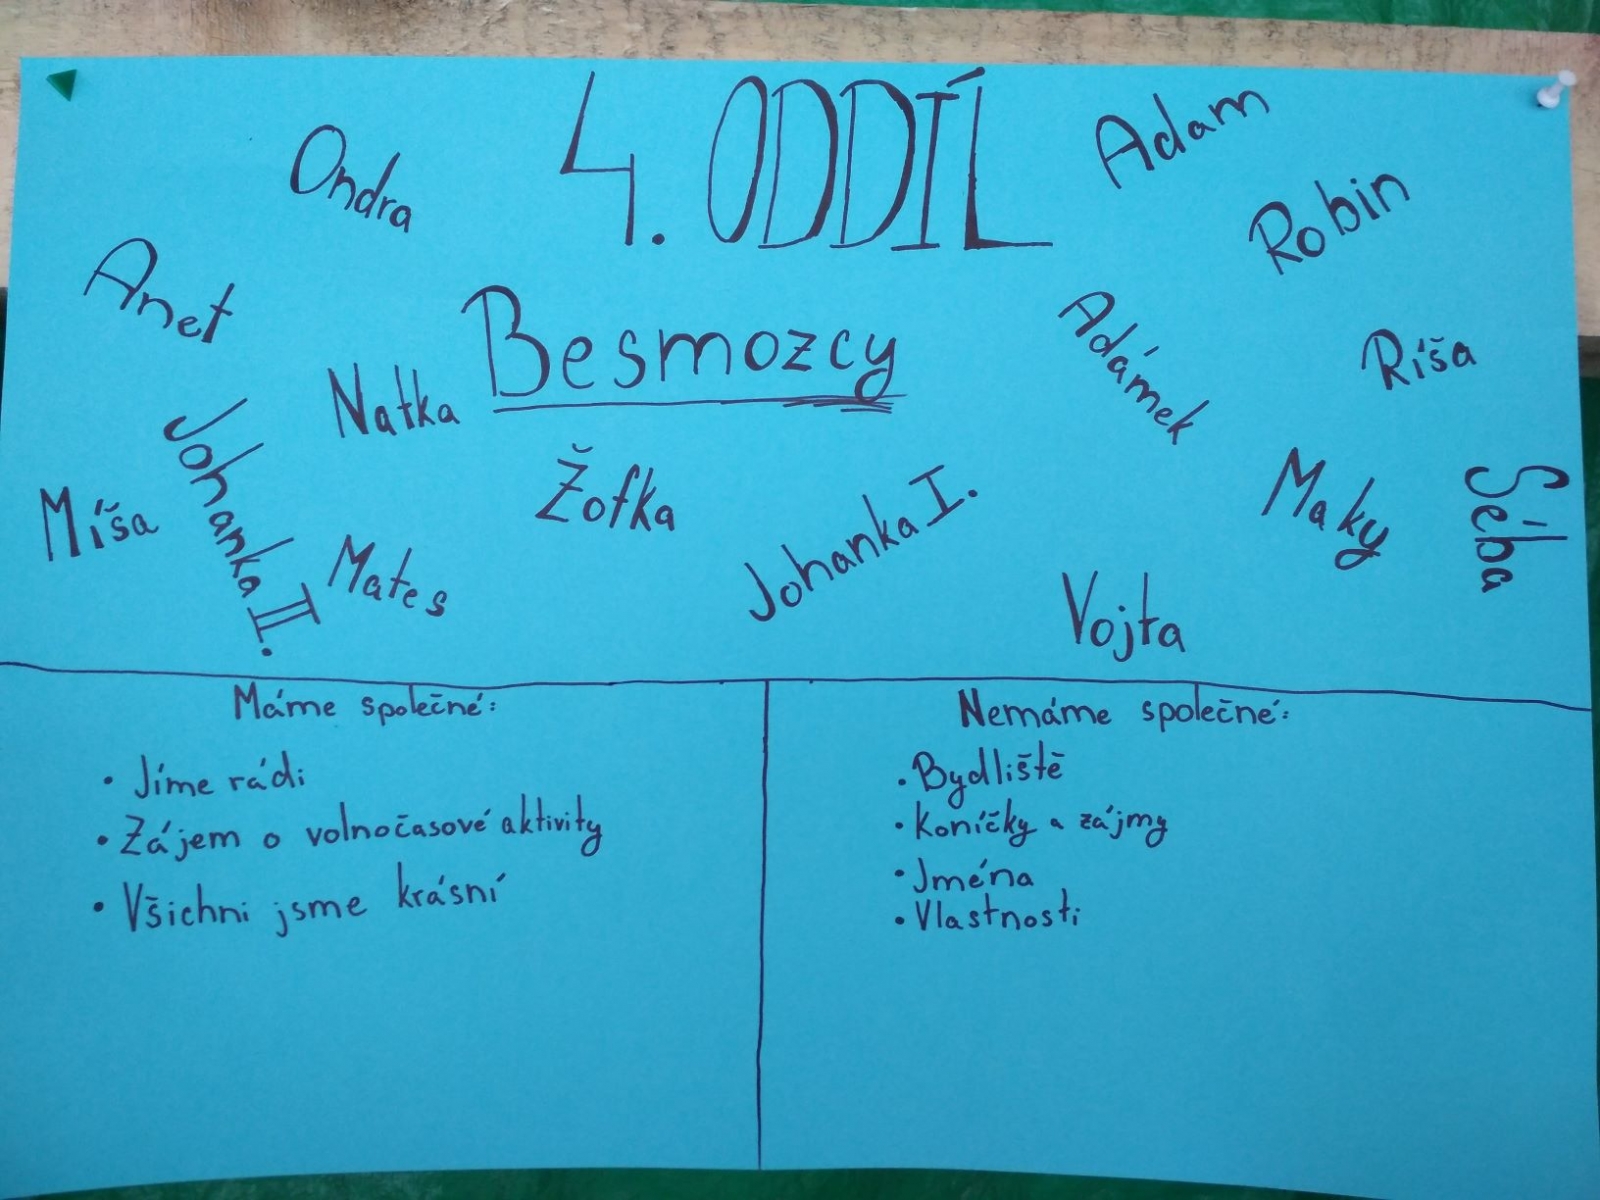 4. ODDÍL
Ondra
Adam
Robin
Anet
Besmozcy
Adámek
Ríša
Natka
Johanka II.
Míša
Žofka
Mates
Johanka I.
Maky
Séba
Vojta
Máme společné:
• Jíme rádi
• Zájem o volnočasové aktivity
• Všichni jsme krásní
Nemáme společné:
• Bydliště
• Koníčky a zájmy
• Jména
• Vlastnosti